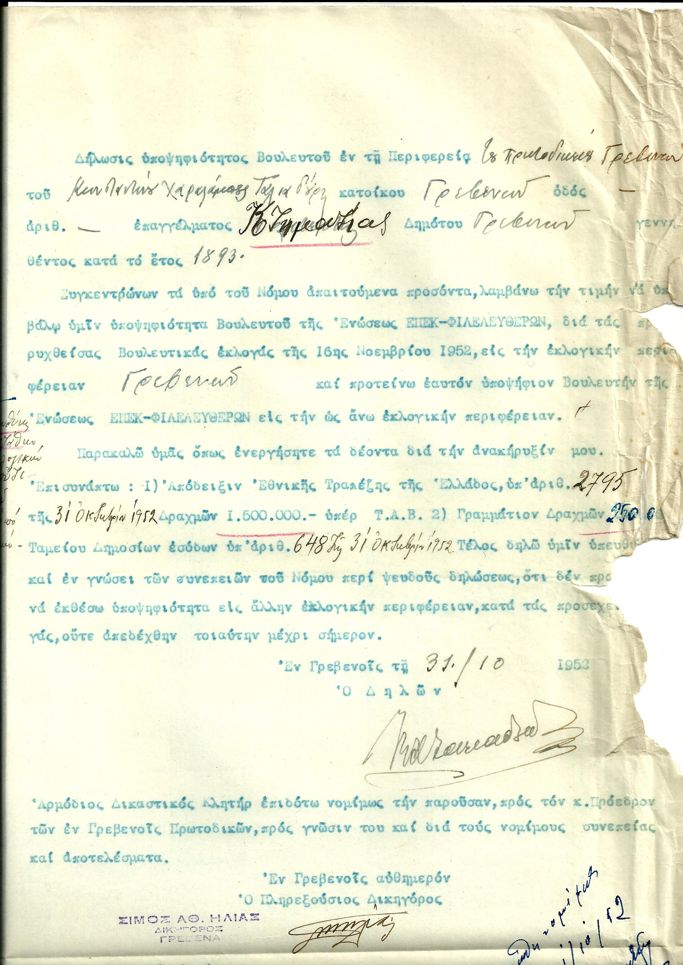 Δήλωσις ὑποψηφιότητος Βουλευτοῦ ἐν τῇ Περιφερείᾳ Γρεβενῶν
τοῦ κατοίκου Γρεβενῶν ὁδός —
ἀριθ. — ἐπαγγέλματος Κτηματίας Δημότου Γρεβενῶν γεννη
θέντος κατά τό ἔτος 1893.
Συγκεντρώνων τά ὑπό τοῦ Νόμου ἀπαιτούμενα προσόντα,λαμβάνω τήν τιμήν νά ὑπ
βάλω ὑμῖν ὑποψηφιότητα Βουλευτοῦ τῆς Ἑνώσεως ΕΠΕΚ-ΦΙΛΕΛΕΥΘΕΡΩΝ, διά τάς πρ
ρυχθείσας Βουλευτικάς ἐκλογάς τῆς 16ης Νοεμβρίου 1952,εἰς τήν ἐκλογικήν περι
φέρειαν Γρεβενῶν καί προτείνω ἑαυτόν ὑποψήφιον Βουλευτήν τῆς
Ἑνώσεως ΕΠΕΚ-ΦΙΛΕΛΕΥΘΕΡΩΝ εἰς τήν ὡς ἄνω ἐκλογικήν περιφέρειαν.
Παρακαλῶ ὑμᾶς ὅπως ἐνεργήσητε τά δέοντα διά τήν ἀνακήρυξίν μου.
Ἐπισυνάπτω : 1) Ἀπόδειξιν Ἐθνικῆς Τραπέζης τῆς Ἑλλάδος,ὑπ'ἀριθ. 2795
τῆς 31 Ὀκτωβρίου 1952 Δραχμῶν 1.500.000.- ὑπέρ Τ.Α.Β. 2) Γραμμάτιον Δραχμῶν 250.0
Ταμείου Δημοσίων ἐσόδων ὑπ'ἀριθ. 648 τῆς 31 Ὀκτωβρίου 1952 Τέλος δηλῶ ὑμῖν ὑπευθ
καί ἐν γνώσει τῶν συνεπειῶν τοῦ Νόμου περί ψευδοῦς δηλώσεως,ὅτι δέν προ
νά ἐκθέσω ὑποψηφιότητα εἰς ἄλλην ἐκλογικήν περιφέρειαν,κατά τάς προσεχε
γάς,οὔτε ἀπεδέχθην τοιαύτην μέχρι σήμερον.
Ἐν Γρεβενοῖς τῇ 31./10 1952
Ὁ Δηλῶν
Ἁρμόδιος Δικαστικός Κλητήρ ἐπιδότω νομίμως τήν παροῦσαν,πρός τόν κ.Πρόεδρον
τῶν ἐν Γρεβενοῖς Πρωτοδικῶν,πρός γνῶσιν του καί διά τούς νομίμους συνεπείας
καί ἀποτελέσματα.
Ἐν Γρεβενοῖς αὐθημερόν
Ὁ Πληρεξούσιος Δικηγόρος
ΣΙΜΟΣ ΑΘ. ΗΛΙΑΣ
ΔΙΚΗΓΟΡΟΣ
ΓΡΕΒΕΝΑ
/10/52